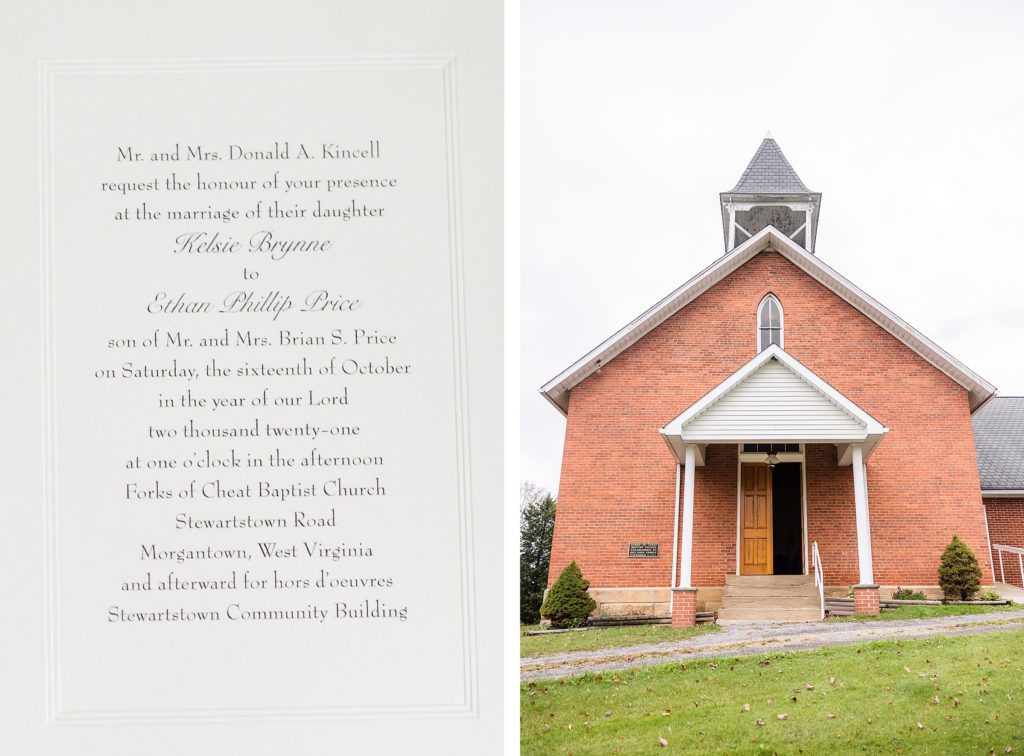 Mr. and Mrs. Donald A. Kincell
request the honour of your presence
at the marriage of their daughter
Kelsie Brynne
to
Ethan Phillip Price
son of Mr. and Mrs. Brian S. Price
on Saturday, the sixteenth of October
in the year of our Lord
two thousand twenty-one
at one o'clock in the afternoon
Forks of Cheat Baptist Church
Stewartstown Road
Morgantown, West Virginia
and afterward for hors d'oeuvres
Stewartstown Community Building